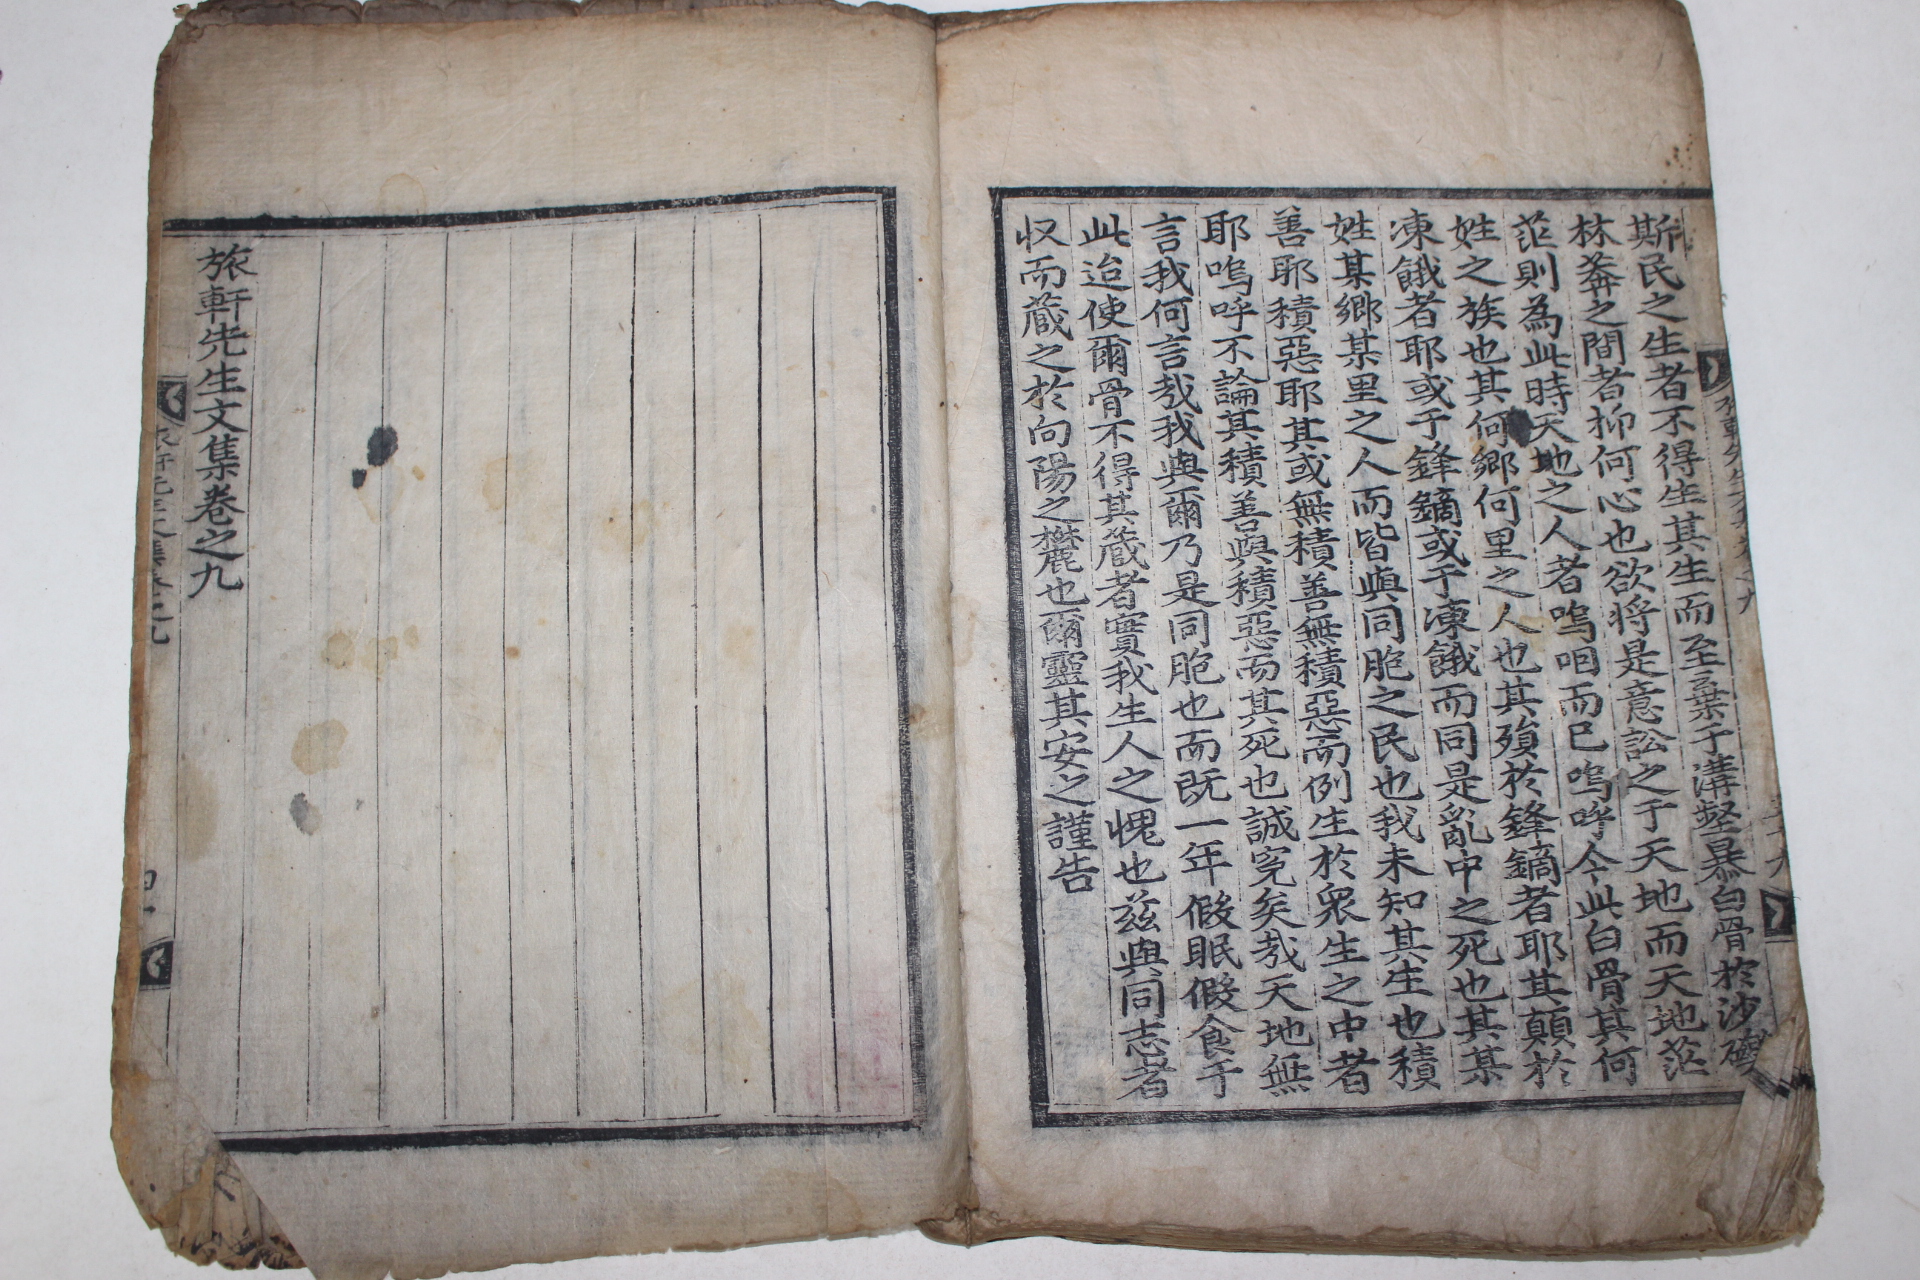 斯民之生者不得生其生而至棄于溝壑暴白骨於沙磧
林莽之間者抑何心也欲將是意訟之于天地而天地茫
茫則為此時天地之人者嗚咽而已嗚呼今此白骨其何
姓之族也其何鄉何里之人也其殞於鋒鏑者耶其顛於
凍餓者耶或于鋒鏑或于凍餓而同是亂中之死也其某
姓某鄉某里之人而皆與同胞之民也我未知其生也積
善耶積惡耶其或無積善無積惡而例生於衆生之中者
耶嗚呼不論其積善與積惡而其死也誠寃矣哉天地無
言我何言哉我與爾乃是同胞也而既一年假眠假食于
此迨使爾骨不得其蔵者實我生人之愧也茲與同志者
収而蔵之於向陽之麓也爾靈其安之謹告
旅軒先生文集卷之九